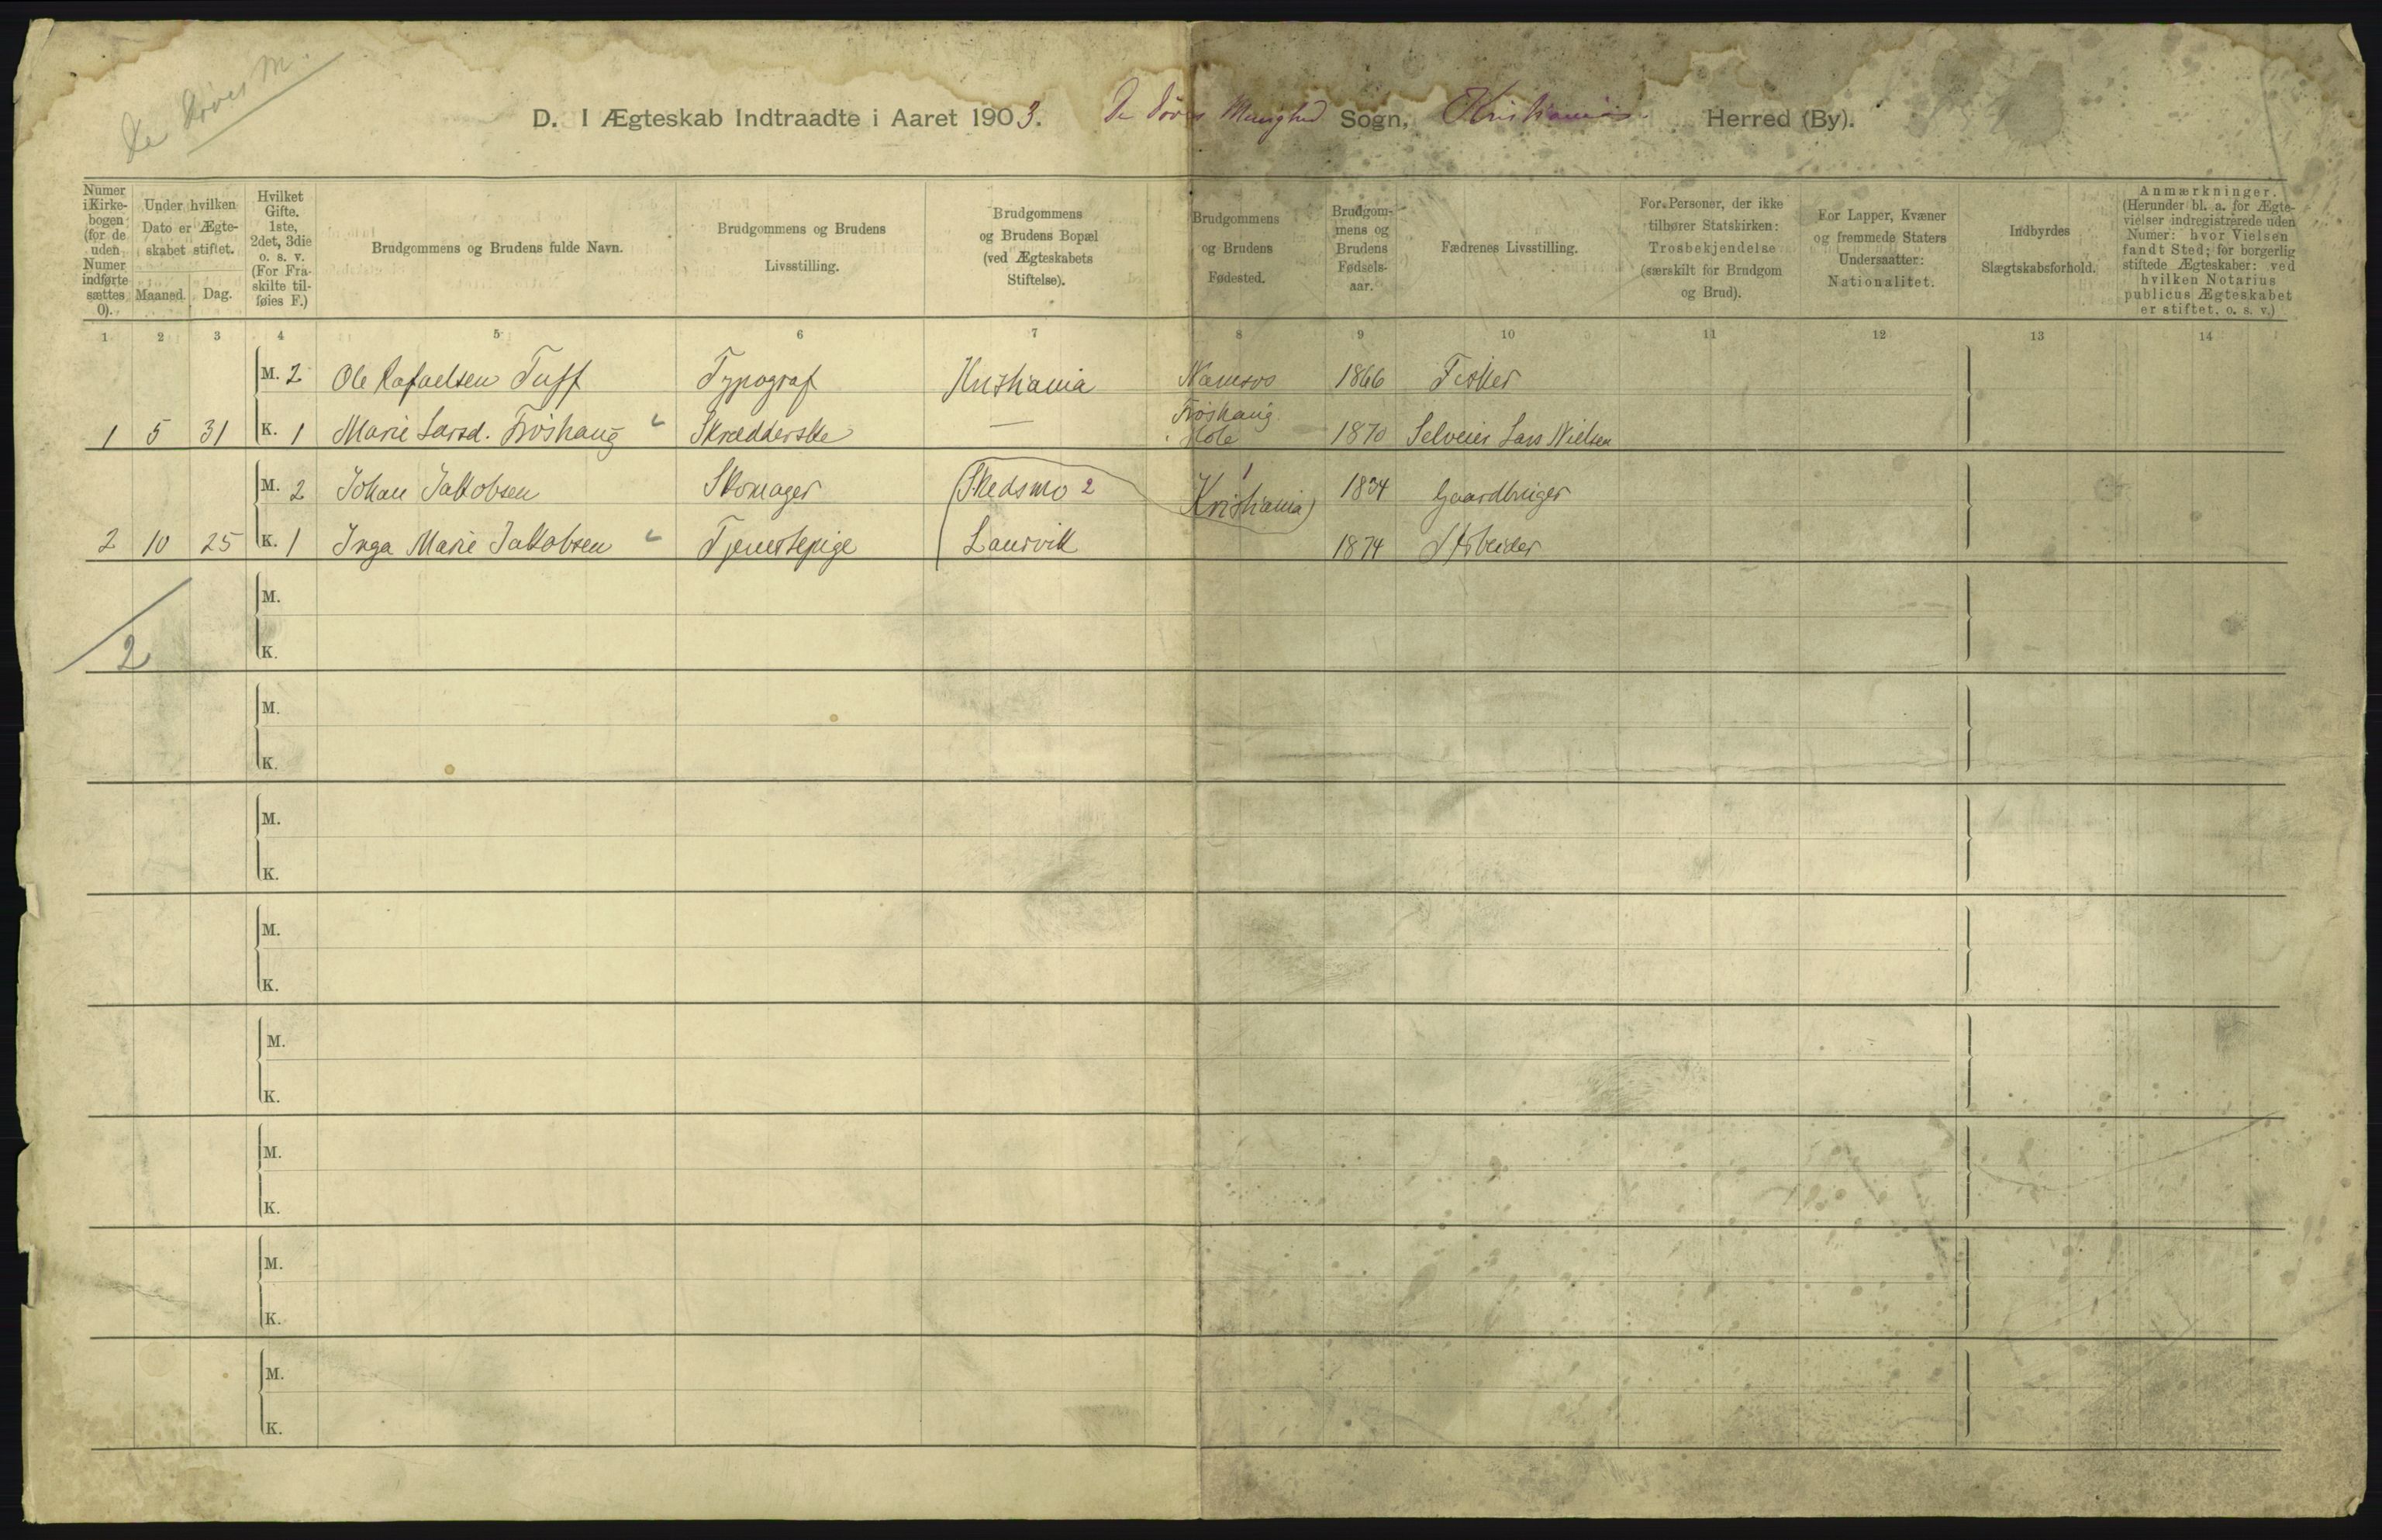 De Døves M.
D. I Ægteskab Indtraadte i Aaret 1903. De Døves Menighed Sogn, Kristiania Herred (By).
Numer i Kirkebogen (for de uden Numer indførte sættes 0).
Under hvilken Dato er Ægteskabet stiftet.
Maaned. Dag.
Hvilket Gifte. 1ste, 2det, 3die o. s. v. (For Fraskilte tilføies F.)
Brudgommens og Brudens fulde Navn.
Brudgommens og Brudens Livsstilling.
Brudgommens og Brudens Bopæl (ved Ægteskabets Stiftelse).
Brudgommens og Brudens Fødested.
Brudgommens og Brudens Fødselsaar.
Fædrenes Livsstilling.
For Personer, der ikke tilhører Statskirken: Trosbekjendelse (særskilt for Brudgom og Brud).
For Lapper, Kvæner og fremmede Staters Undersaatter: Nationalitet.
Indbyrdes Slægtskabsforhold.
Anmærkninger. (Herunder bl. a. for Ægtevielser indregistrerede uden Numer: hvor Vielsen fandt Sted; for borgerlig stiftede Ægteskaber: ved hvilken Notarius publicus Ægteskabet er stiftet, o. s. v.)
1 2 3 4 5 6 7 8 9 10 11 12 13 14
M. 2 Ole Rafaelsen Tuff Typograf Kristiania Namsos 1866 Fisker
1 5 31 K. 1 Marie Larsd. Frøshaug Skrædderske — Frøshaug Hole 1870 Selveier Lars Nielsen
M. 2 Johan Jakobsen Skomager (Skedsmo 2 Kristiania) 1 1834 Gaardbruger
2 10 25 K. 1 Inga Marie Jakobsen Tjenestepige Laurvik 1874 Arbeider
M.
2 K.
M.
K.
M.
K.
M.
K.
M.
K.
M.
K.
M.
K.
M.
K.